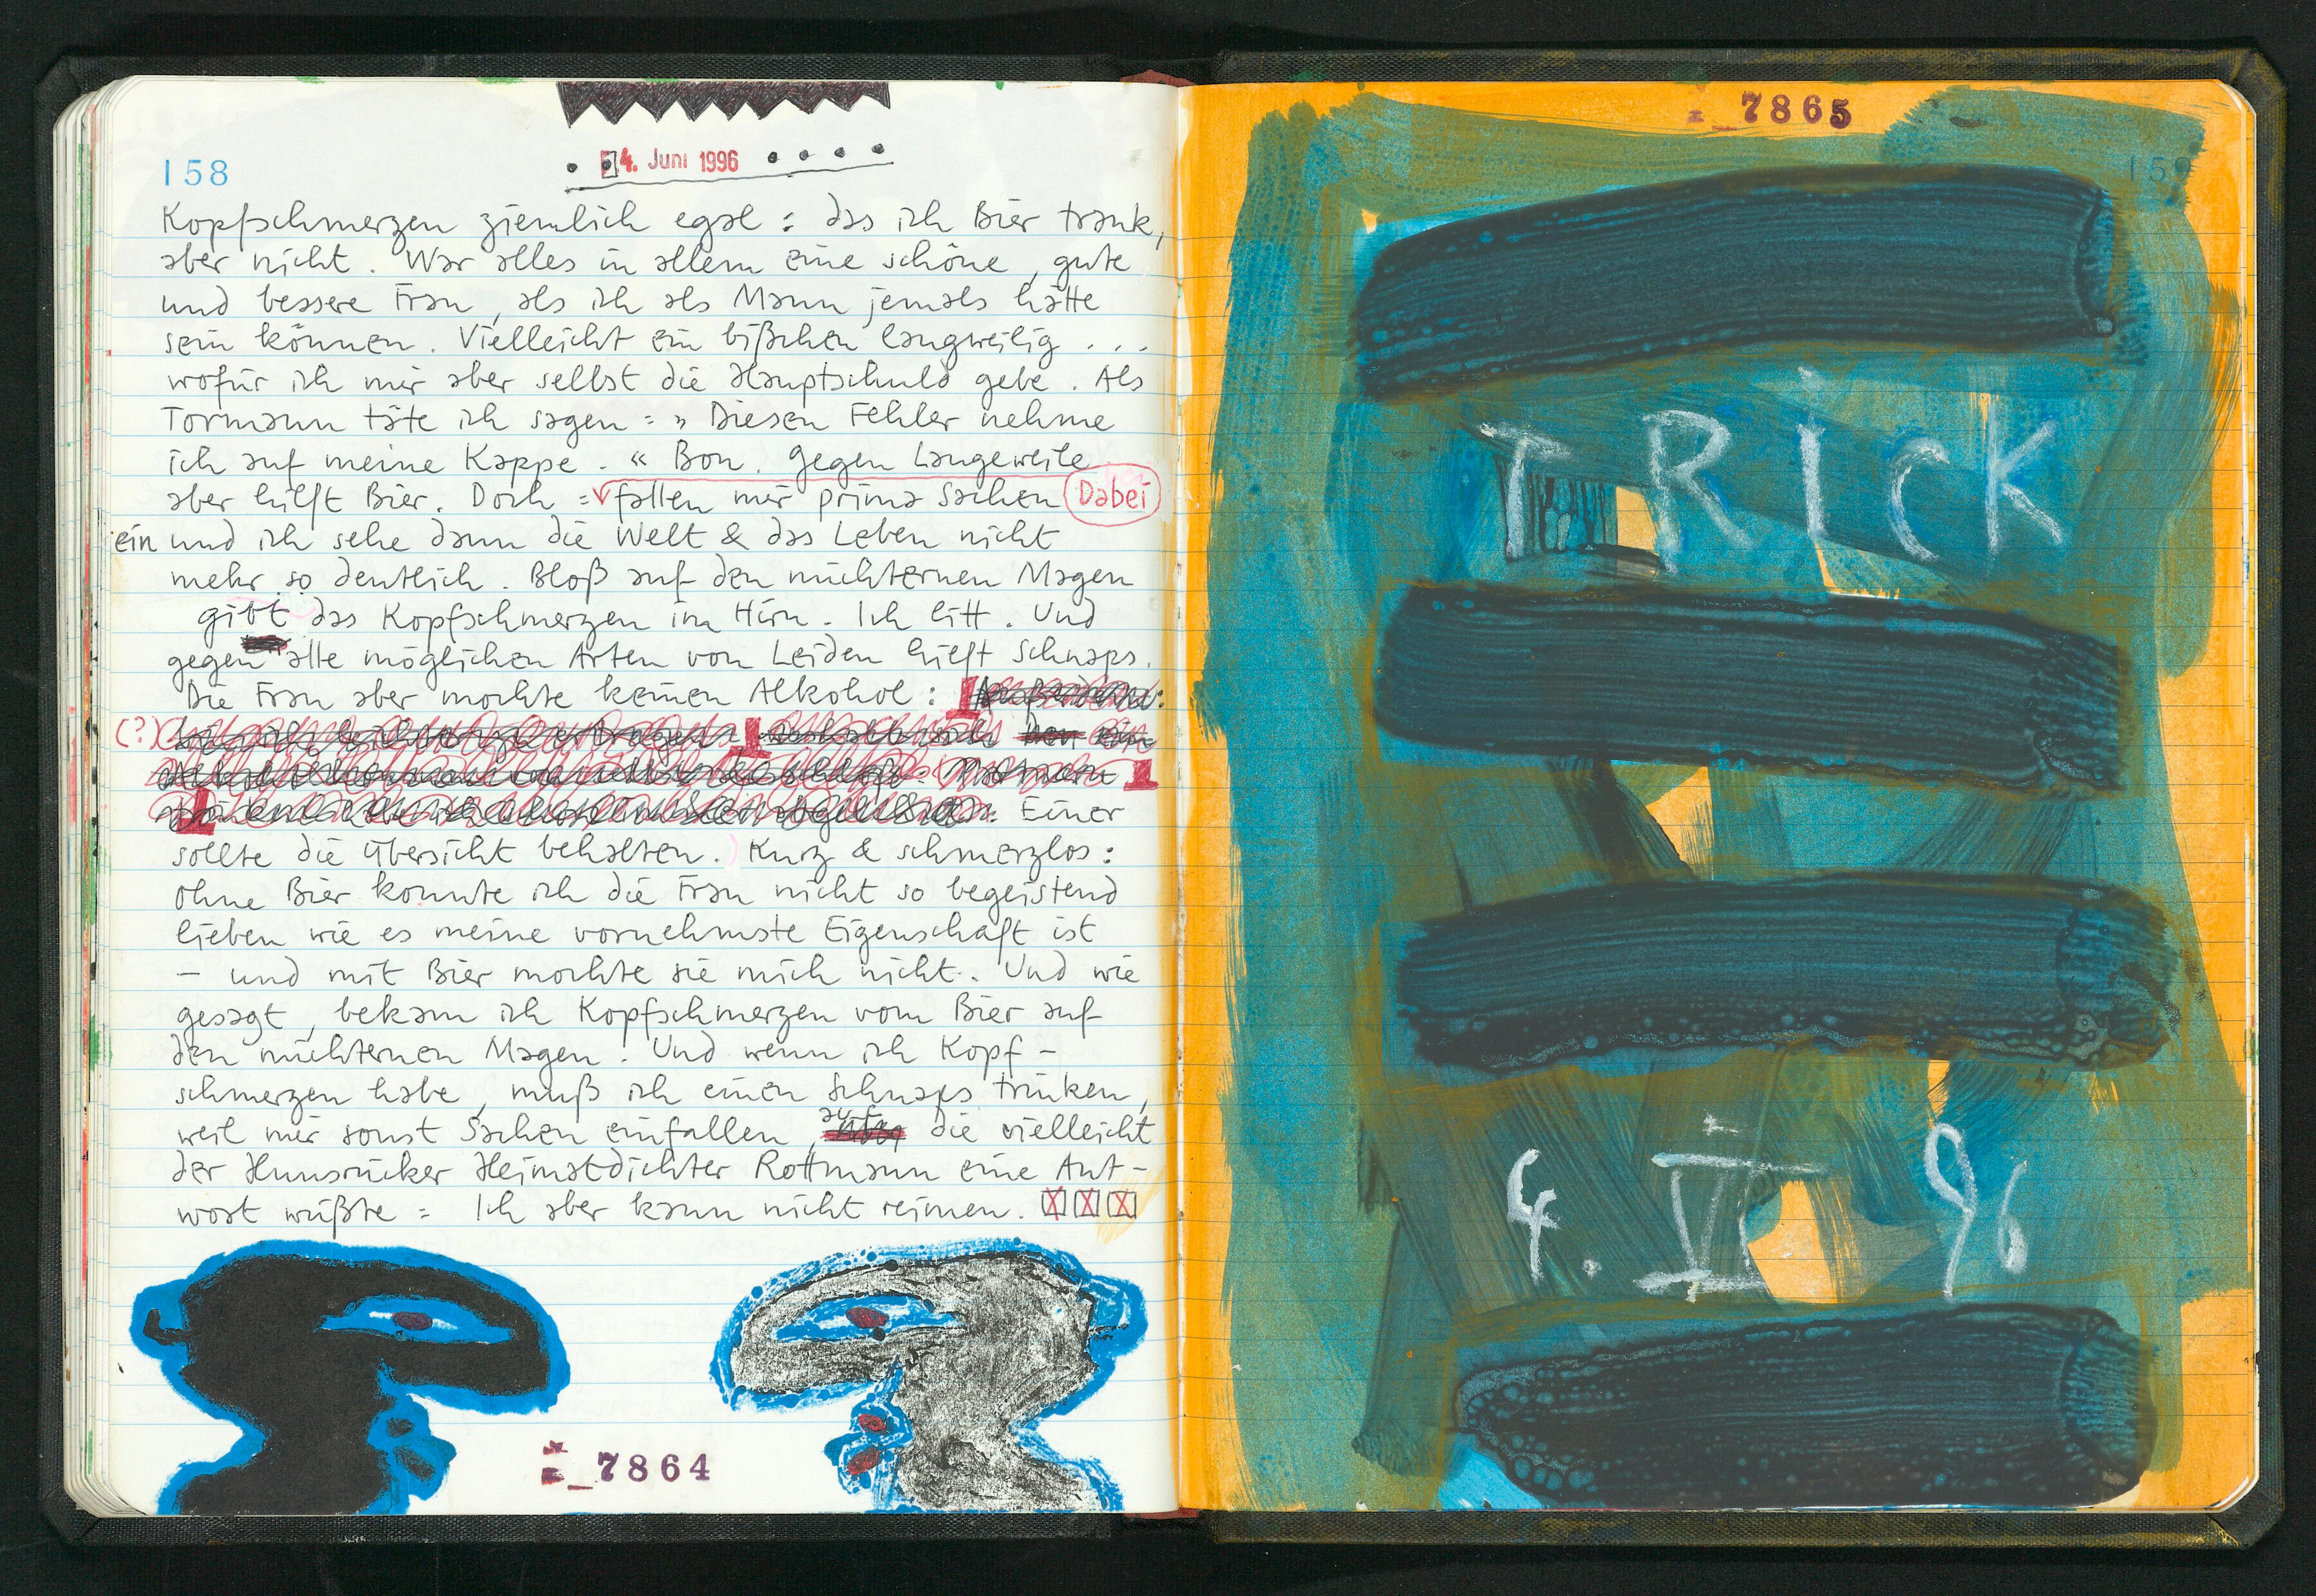 158
4. Juni 1996
Kopfschmerzen ziemlich egal : das ich Bier trank,
aber nicht. War alles in allem eine schöne, gute
und bessere Frau, als ich als Mann jemals hätte
sein können. Vielleicht ein bißchen langweilig ...
wofür ich mir aber selbst die Hauptschuld gebe. Als
Tormann täte ich sagen : » Diesen Fehler nehme
ich auf meine Kappe. « Bon. Gegen Langeweile
aber hilft Bier. Doch : fallen mir prima Sachen Dabei
ein und ich sehe dann die Welt & das Leben nicht
mehr so deutlich. Bloß auf den nüchternen Magen
gibt das Kopfschmerzen im Hirn. Ich litt. Und
gegen alle möglichen Arten von Leiden hilft Schnaps.
Die Frau aber mochte keinen Alkohol :
(?)
Einer
sollte die Übersicht behalten. Kurz & schmerzlos :
ohne Bier konnte ich die Frau nicht so begeistend
lieben wie es meine vornehmste Eigenschaft ist
– und mit Bier mochte sie mich nicht. Und wie
gesagt, bekam ich Kopfschmerzen vom Bier auf
den nüchternen Magen. Und wenn ich Kopf-
schmerzen habe, muß ich einen Schnaps trinken,
weil mir sonst Sachen einfallen, auf die vielleicht
der Hunsrücker Heimatdichter Rottmann eine Ant-
wort wüßte : Ich aber kann nicht reimen.
7864
7865
159
TRICK
4. VI 96